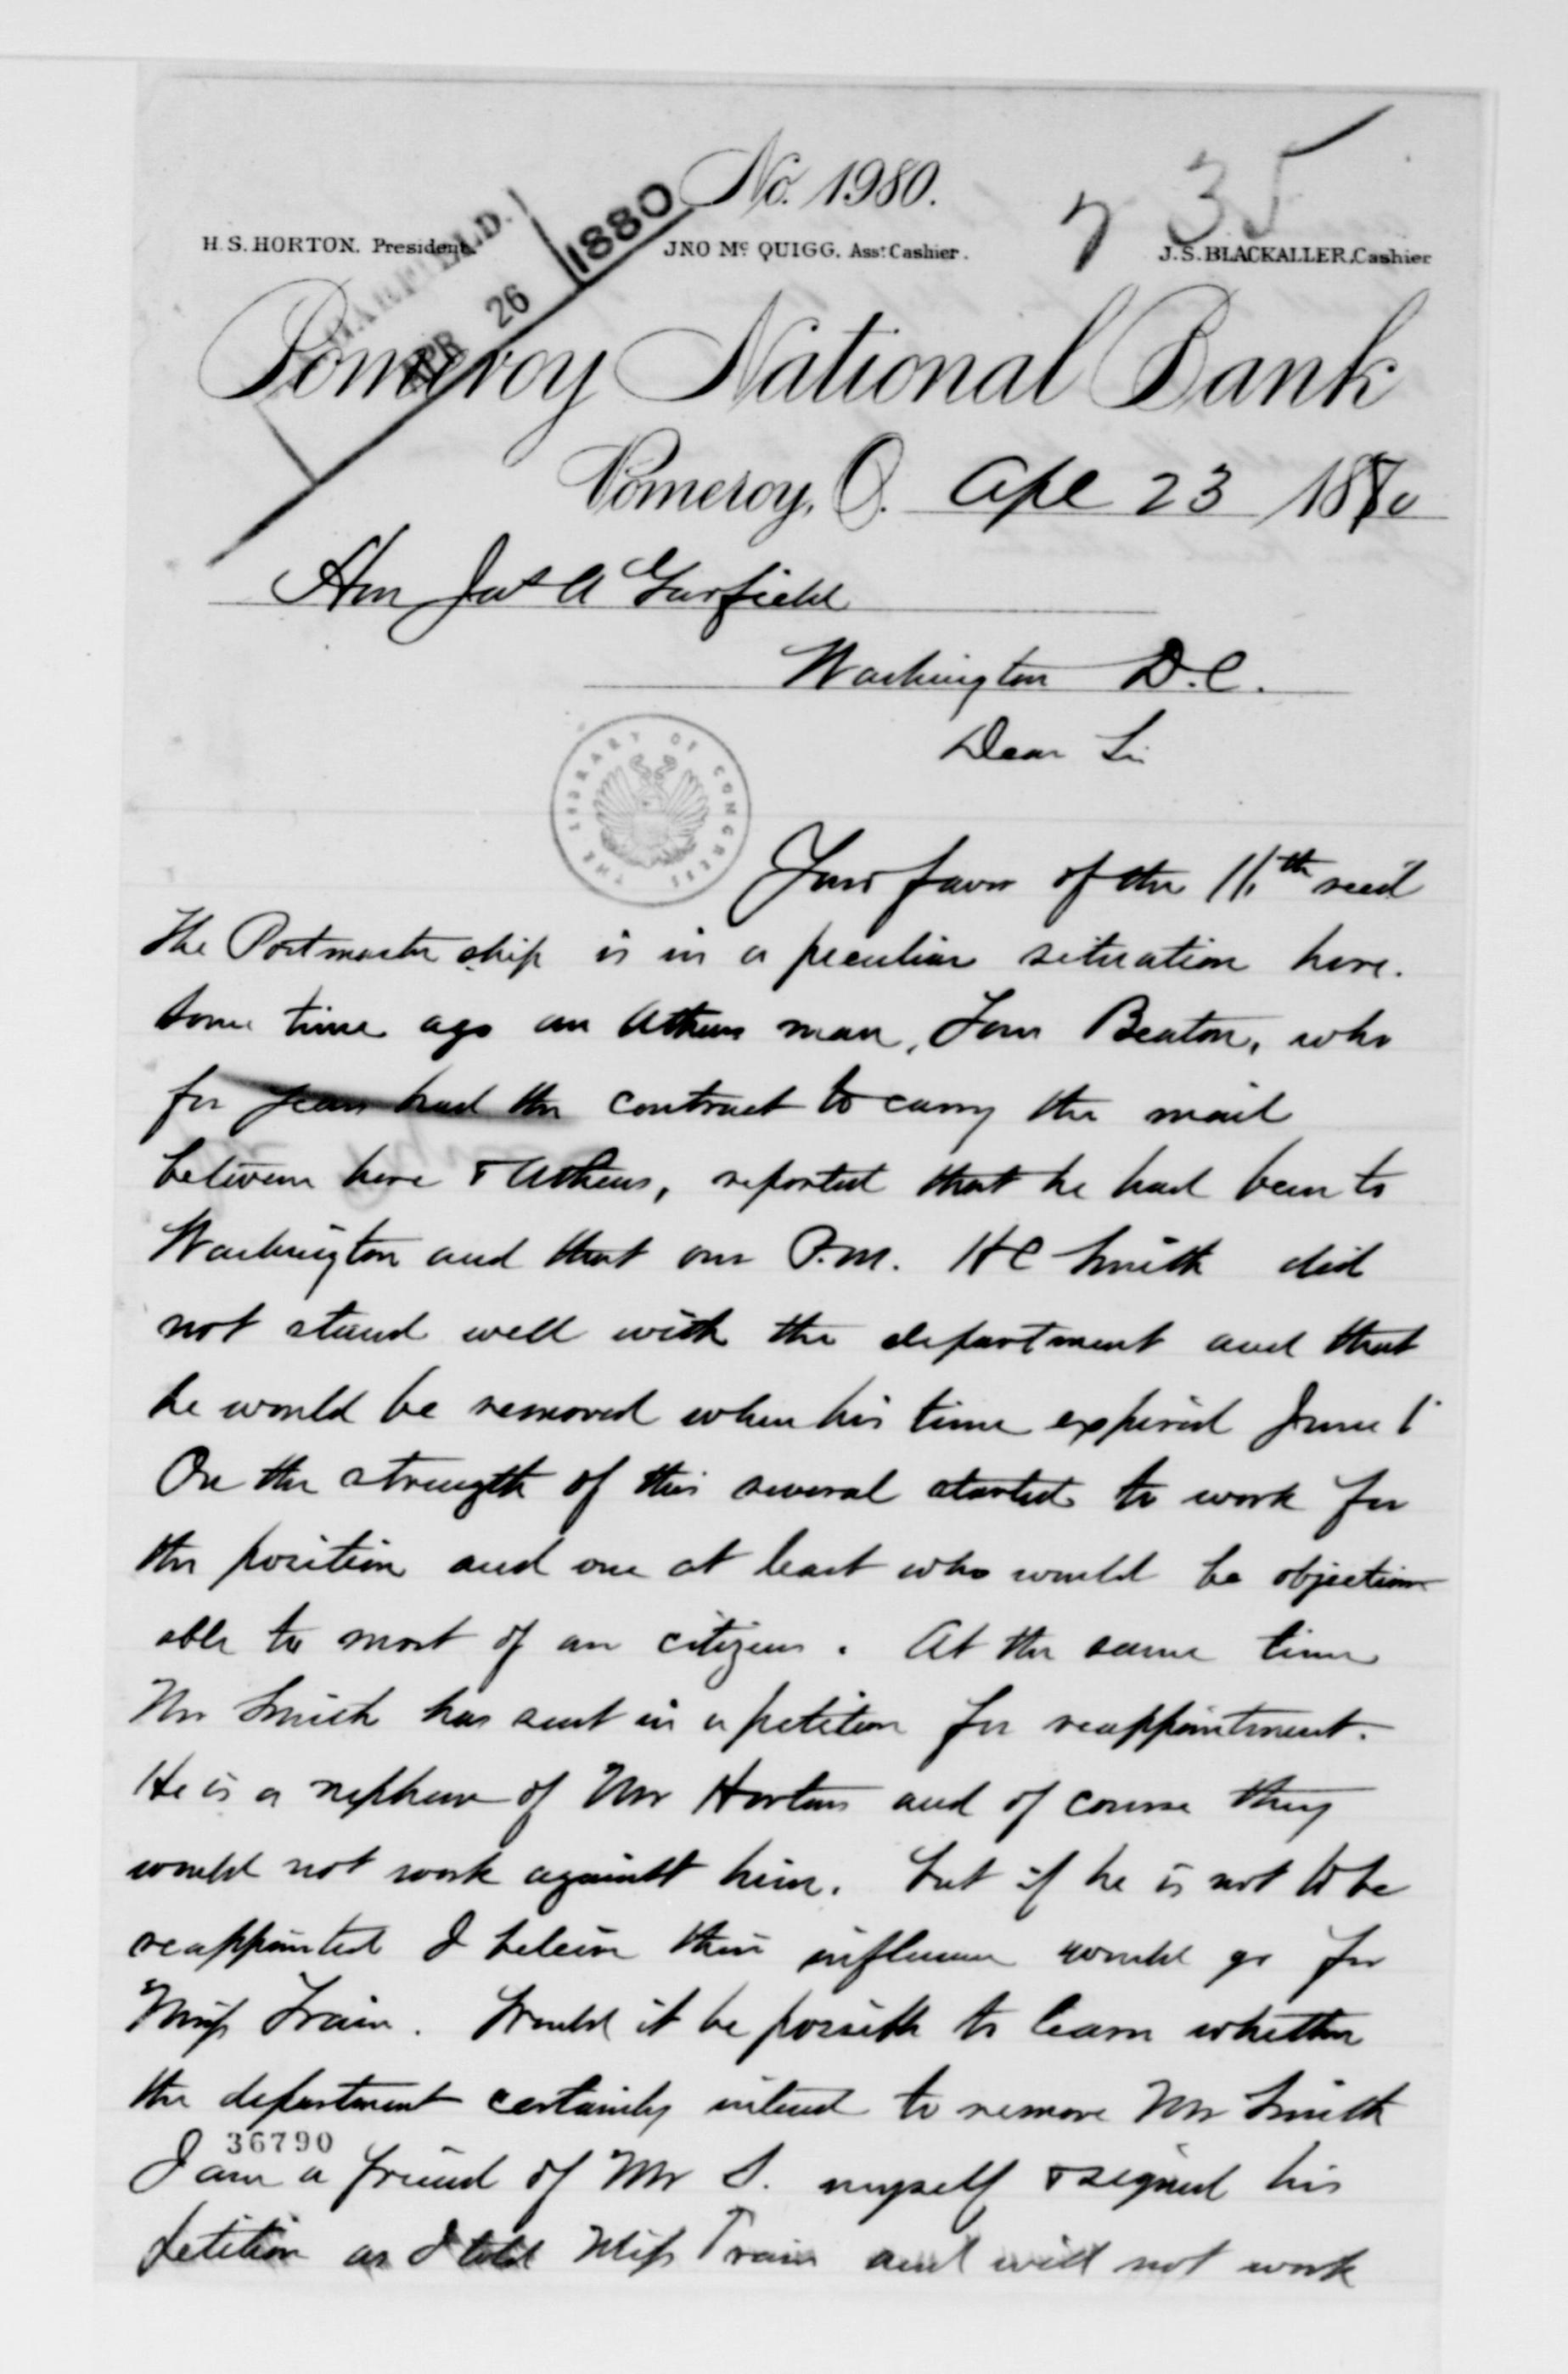 No. 1980.
7 35
H. S. HORTON. President.
JNO Mc. QUIGG. Asst. Cashier.
J. S. BLACKALLER, Cashier
GARFIELD.
APR 26 1880
Pomeroy National Bank
Pomeroy, O. Apl 23 1880
Hon Jas A Garfield
Washington D.C.
Dear Sir
THE LIBRARY OF CONGRESS
Your favor of the 11th recd
The Postmaster ship is in a peculiar situation here.
Some time ago an Athens man, Tom Beaton, who
for years had the contract to carry the mail
between here & Athens, reported that he had been to
Washington and that our P.M. H C Smith did
not stand well with the department and that
he would be removed when his time expired June 1
On the strength of this several started to work for
the position and one at least who would be objection
able to most of our citizens. At the same time
Mr Smith has sent in a petition for reappointment.
He is a nephew of Mr Hortons and of course they
would not work against him. but if he is not to be
reappointed I beleive their influence would go for
Miss Train. Would it be possible to learn whether
the department certainly intend to remove Mr Smith
36790
I am a friend of Mr S. myself & signed his
petition as I told Miss Train and will not work